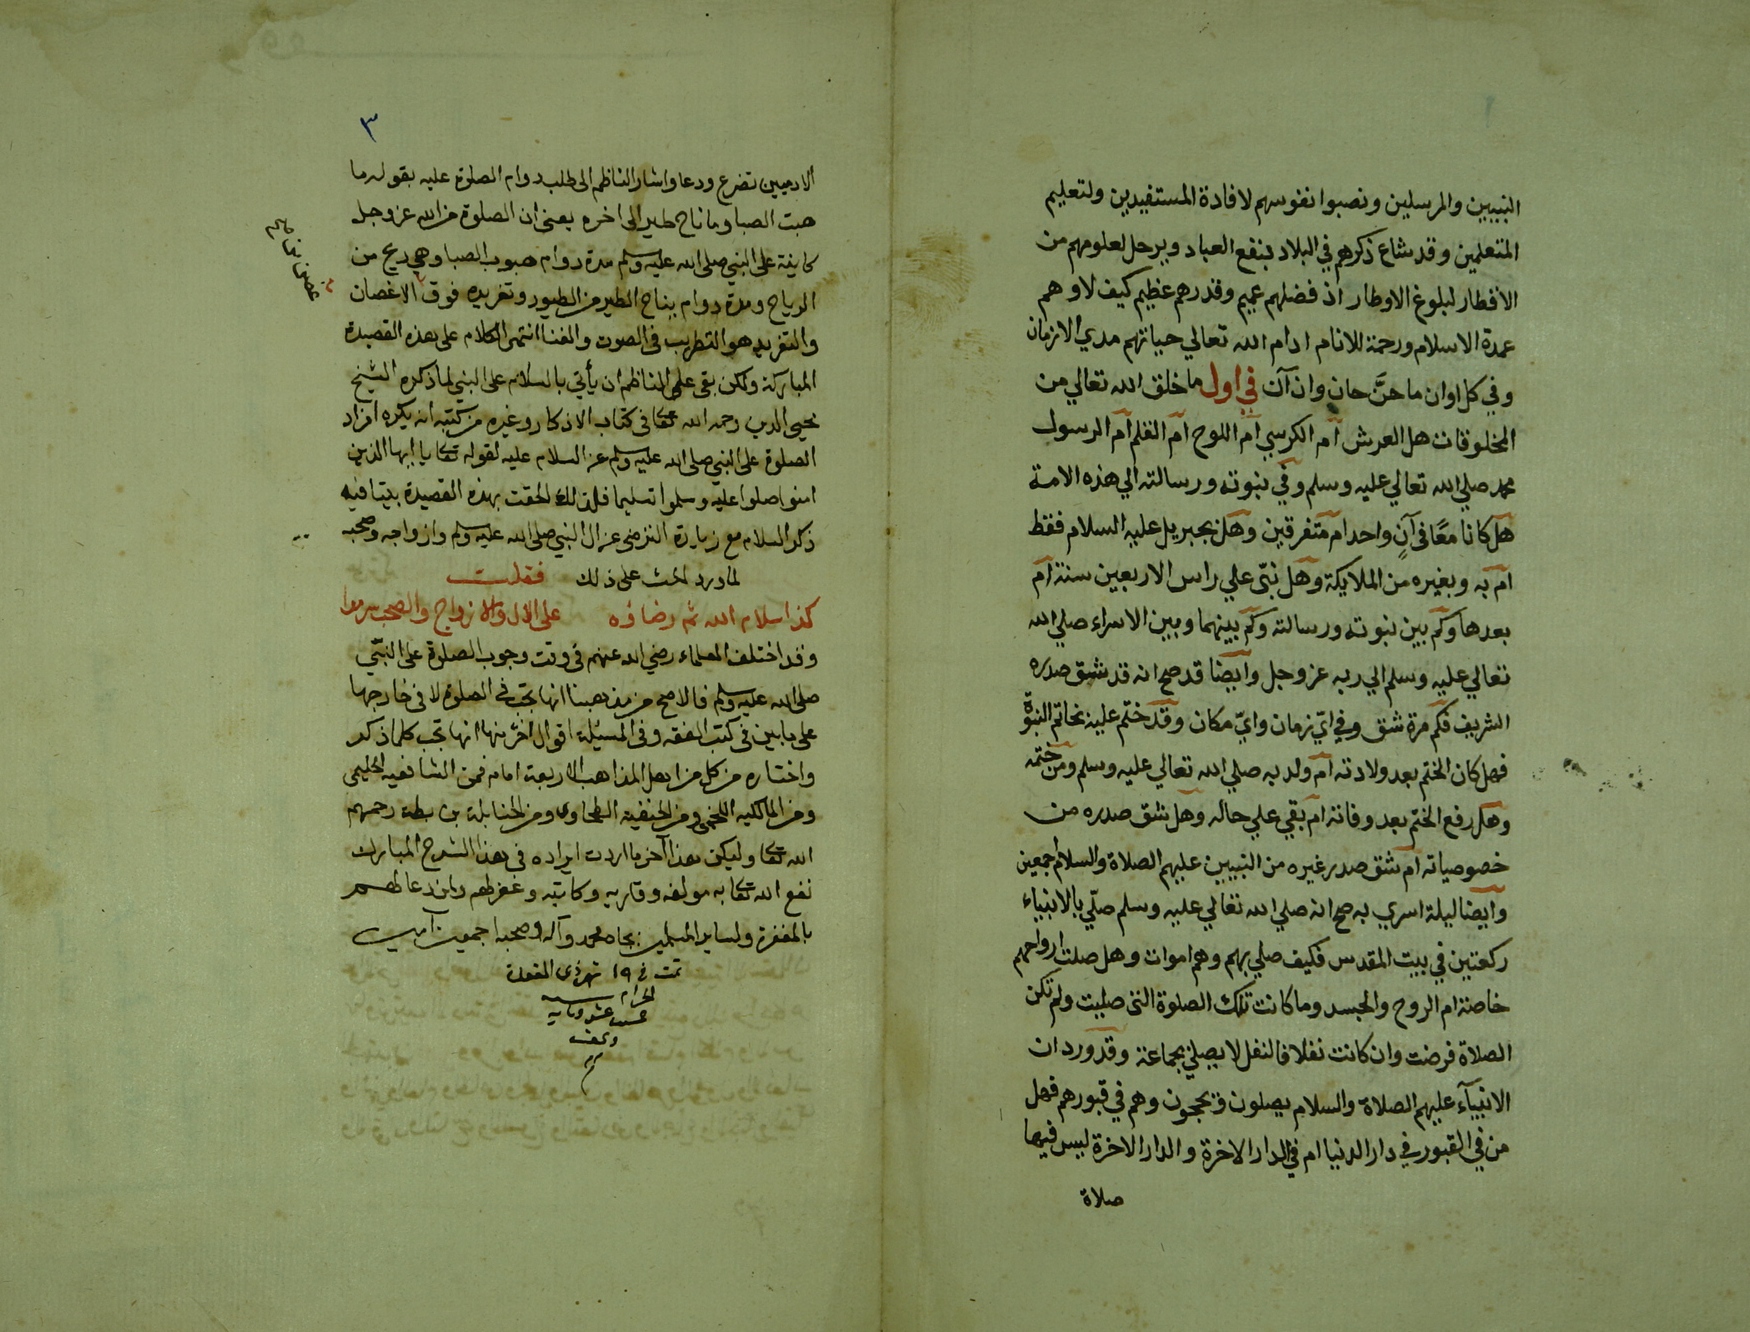 النبيين والمرسلين ونصبوا نفوسهم لافادة المستفيدين ولتعليم
المتعلمين وقد شاع ذكرهم في البلاد بنفع العباد ويرحل لعلومهم من
الاقطار لبلوغ الاوطار اذ فضلهم عميم وقدرهم عظيم كيف لا وهم
عمدة الاسلام ورحمة للانام ادام الله تعالي حياتهم مدي الازمان
وفي كل اوان ما حنَّ حان وان آن في اول ما خلق الله تعالي من
المخلوقات هل العرش ام الكرسي ام اللوح ام القلم ام الرسول
محمد صلي الله تعالي عليه وسلم وفي نبوته ورسالته الي هذه الامة
هل كانا معًا في آنٍ واحد ام متفرقين وهل بجبريل عليه السلام فقط
ام به وبغيره من الملايكة وهل نبّي علي راس الاربعين سنة ام
بعدها وكم بين نبوته ورسالته وكم بينهما وبين الاسراء صلي الله
تعالي عليه وسلم الي ربه عز وجل وايضا قد صح انه قد شق صدره
الشريف فكم مرة شق وفي ايّ زمان وايّ مكان وقد ختم عليه بخاتم النبوّة
فهل كان الختم بعد ولادته ام ولد به صلي الله تعالي عليه وسلم ومن ختمه
وهل رفع الختم بعد وفاته ام بقي علي حاله وهل شق صدره من
خصوصياته ام شق صدر غيره من النبيين عليهم الصلاة والسلام اجمعين
وايضا ليلة اسري به صح انه صلي الله تعالي عليه وسلم صلّي بالانبياء
ركعتين في بيت المقدس فكيف صلي بهم وهم اموات وهل صلت ارواحهم
خاصة ام الروح والجسد وما كانت تلك الصلوة التي صليت ولم تكن
الصلاة فرضت وان كانت نفلا فالنفل لا يصلي بجماعة وقد ورد ان
الانبيآء عليهم الصلاة والسلام يصلون ويحجون وهم في قبورهم فهل
من في القبور في دار الدنيا ام في الدار الاخرة والدار الاخرة ليس فيها
صلاة
٣
الادميين تضرع ودعا واشار الناظم الى طلب دوام الصلوة عليه بقوله ما
هبت الصبا وما ناح طير الى اخره يعنى ان الصلوة من الله عز وجل
كاينة على النبي صلى الله عليه وسلم مدة دوام هبوب الصبا وهي ريح من
الرياح ومدة دوام يناح الطير من الطيور وتغريده فوق الاغصان
والتغريد هو التطريب في الصوت والغنا انتهى الكلام على هذه القصيدة
المباركة ولكن بقي على الناظم ان يأتي بالسلام على النبي لما ذكره الشيخ
محيى الدين رحمه الله تعا في كتاب الاذكار وغيره من كتبه انه يكره افراد
الصلوة على النبي صلى الله عليه وسلم عن السلام عليه لقوله تعا يا ايها الذين
امنوا صلوا عليه وسلموا تسليما فلذلك الحقت بهذه القصيدة بيتا فيه
ذكر السلام مع زيادة الترضى عن ال النبي صلى الله عليه وسلم وازواجه وصحبه
لما ورد الحث على ذلك فقلت
كذا سلام الله ثم رضاؤه على الال والازواج والصحب سرمدا
وقد اختلف العلماء رضي الله عنهم في وقت وجوب الصلوة على النبّي
صلى الله عليه وسلم فالاصح من مذهبنا انها تجب في الصلوة لا في خارجها
على ما بين في كتب الفقه وفي المسئلة اقوال اخر منها انها تجب كلما ذكر
واختاره من كل من اهل المذاهب الاربعة امام فمن الشافعيه الحليمى
ومن المالكيه اللخمى ومن الحنفية الطحاوى ومن الحنابلة بن بطة رحمهم
الله تعا وليكن هذا آخر ما اردت ايراده في هذا الشرح المبارك
نفع الله تعا به مولفه وقاريه وكاتبه وغفر لهم ولمن دعا لهم
بالمغفرة ولساير المسلمين بجاه محمد وآله وصحبه اجمعين آمين
تمت في ١٩ شهر ذى القعدة
الحرام سنه